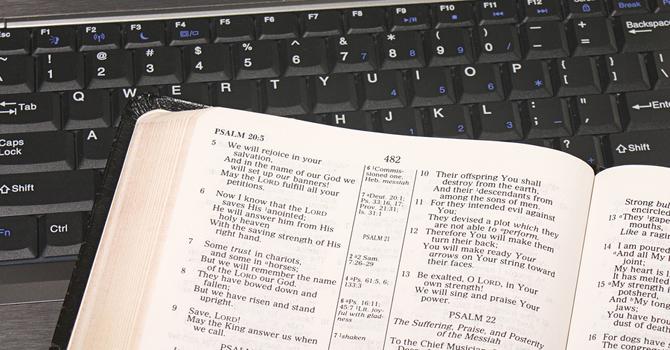 Esc F1 F2 F3 F4 F5 F6 F7 F8 F9 F10 F11 F12 Break
! 1 @ 2 # 3 $ 4 % 5 ^ 6 & 7 7 * 8 8 ( 9 9 ) 0 Backspace
Tab Q W E R T Y U 4 I 5 O 6 P * { [ } ]
Caps Lock A J 1 K 2 L 3 : ; " ' Enter
Shift Shift
Fn Ctrl
PSALM 20:5
482
5 We will rejoice in your
salvation,
And in the name of our God we
will set up our banners!
May the LORD fulfill all your
petitions.
6 Now I know that the LORD
saves His anointed;
He will answer him from His
holy heaven
With the saving strength of His
right hand.
7 Some trust in chariots,
and some in horses;
But we will remember the name
of the LORD our God.
8 They have bowed down and
fallen;
But we have risen and stand
upright.
9 Save, LORD!
May the King answer us when
we call.
6 Commis-
sioned one,
Heb. messiah
7 Deut. 20:1;
Ps. 33:16, 17;
Prov. 21:31;
Is. 31:1
PSALM 21
2 2 Sam.
7:26-29
4 Ps. 61:5, 6;
133:3
6 Ps. 16:11;
45:7 Lit. joy-
ful with glad-
ness
7 shaken
10 Their offspring You shall
destroy from the earth,
And their descendants from
among the sons of men.
11 For they intended evil against
You;
They devised a plot which they
are not able to perform.
12 Therefore You will make them
turn their back;
You will make ready Your
arrows on Your string toward
their faces.
13 Be exalted, O LORD, in Your
own strength!
We will sing and praise Your
power.
PSALM 22
The Suffering, Praise, and Posterity
of the Messiah
To the Chief Musician
Strong bul
encircle
13 They gape
mouths,
Like a ragin
14 I am poured
And all My
joint;
My heart is l
It has melted
15 My strength i
potsherd,
And My tong
jaws;
You have brou
dust of death
16 For dogs have